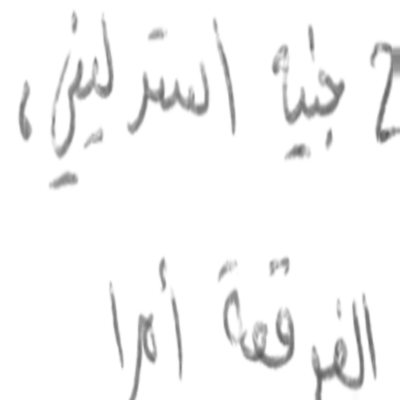 2 جنيه استرليني،
الفرقعة أمرا